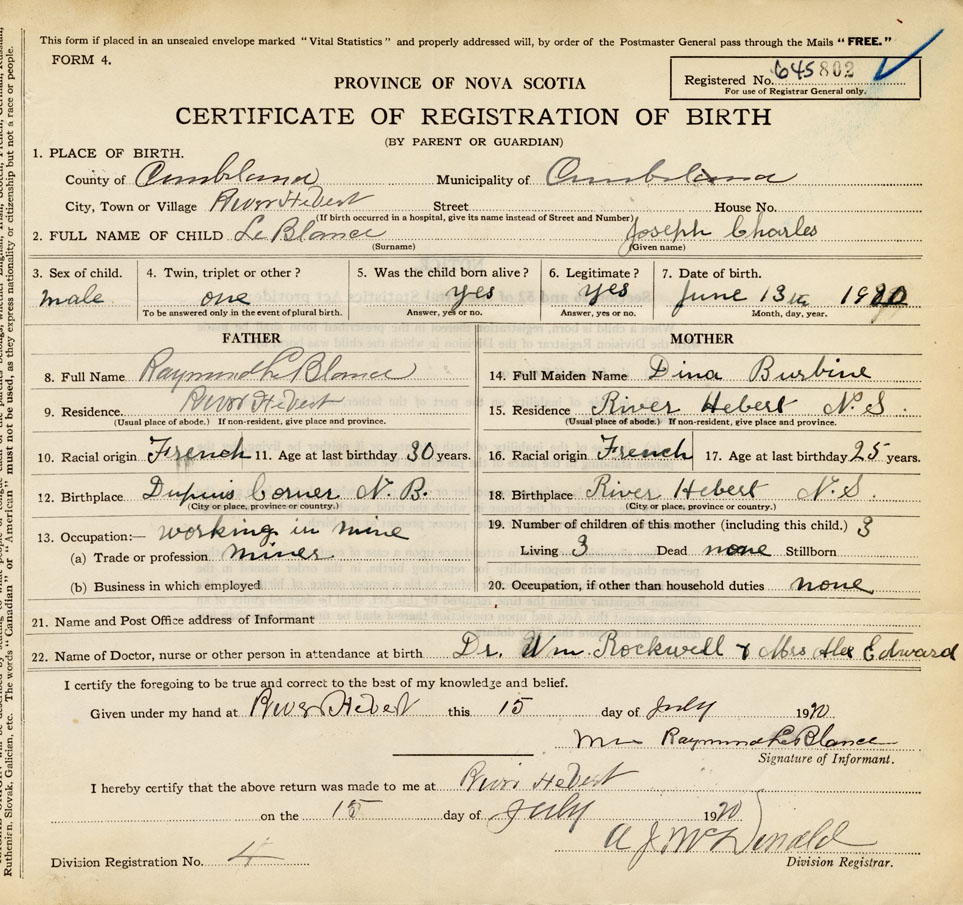 This form if placed in an unsealed envelope marked "Vital Statistics" and properly addressed will, by order of the Postmaster General pass through the Mails "FREE."
FORM 4.
Registered No. 645802
For use of Registrar General only.
PROVINCE OF NOVA SCOTIA
CERTIFICATE OF REGISTRATION OF BIRTH
(BY PARENT OR GUARDIAN)
1. PLACE OF BIRTH.
County of Cumbland Municipality of Cumbland
City, Town or Village River Hebert Street House No.
(If birth occurred in a hospital, give its name instead of Street and Number)
2. FULL NAME OF CHILD Le Blance Joseph Charles
(Surname) (Given name)
3. Sex of child. 4. Twin, triplet or other? 5. Was the child born alive? 6. Legitimate? 7. Date of birth.
male one yes yes June 13th 1920
To be answered only in the event of plural birth. Answer, yes or no. Answer, yes or no. Month, day, year.
FATHER MOTHER
8. Full Name Raymond Le Blance 14. Full Maiden Name Dina Burbine
9. Residence. River Hebert 15. Residence River Hebert N.S.
(Usual place of abode.) If non-resident, give place and province. (Usual place of abode.) If non-resident, give place and province.
10. Racial origin French 11. Age at last birthday 30 years. 16. Racial origin French 17. Age at last birthday 25 years.
12. Birthplace Dupuis Corner N.B. 18. Birthplace River Hebert N.S.
(City or place, province or country.) (City or place, province or country.)
13. Occupation:— working in mine 19. Number of children of this mother (including this child.) 3
(a) Trade or profession miner Living 3 Dead none Stillborn
(b) Business in which employed 20. Occupation, if other than household duties none
21. Name and Post Office address of Informant
22. Name of Doctor, nurse or other person in attendance at birth Dr. Wm. Rockwell & Mrs Alex Edward
I certify the foregoing to be true and correct to the best of my knowledge and belief.
Given under my hand at River Hebert this 15 day of July 1920
Mrs Raymond Le Blance
Signature of Informant.
I hereby certify that the above return was made to me at River Hebert
on the 15 day of July 1920
A J McDonald
Division Registration No. 4 Division Registrar.
Ruthenian, Slovak, Galician, etc. The words "Canadian" or "American must not be used, as they express nationality or citizenship but not a race or people.